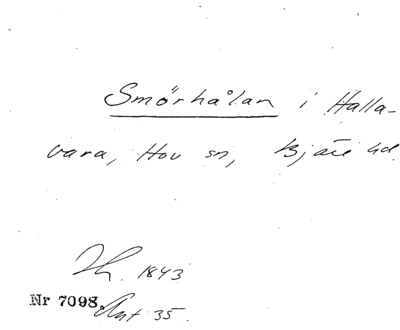 Smörhålan i Halla-
vara, Hov sn, Bjäre hd.
Th. 1843
Nr 7098 Ant 35.